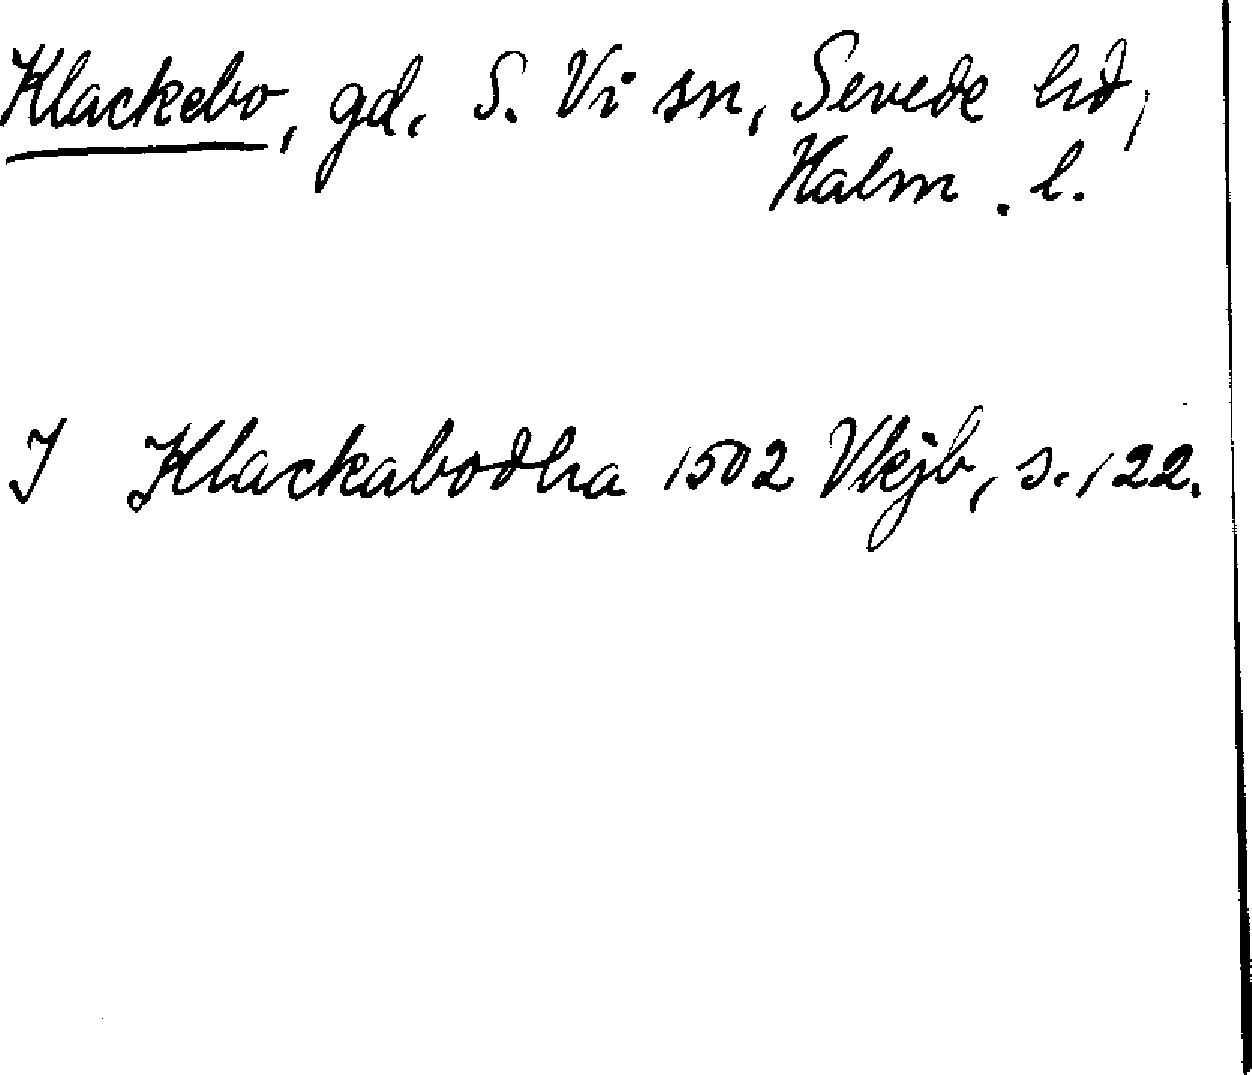 Klackebo, gd, S. Vi sn, Sevede hd,
Kalm. l.
I Klackabodha 1502 Vkjb, s. 122.